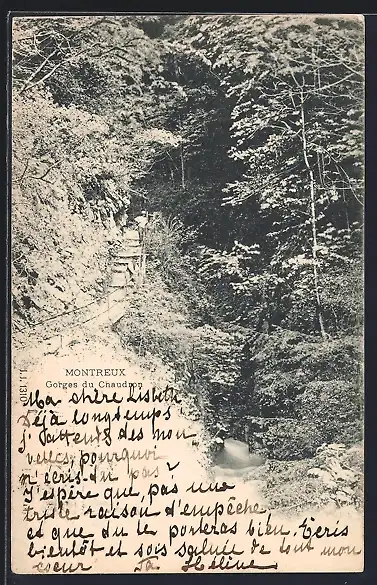 MONTREUX
Gorges du Chaudron
Ma chère Lisbeth
Déjà longtemps
j'attends des nou
velles, pourquoi
n'écris-du pas?
J'espère que, pas une
triste raison d'empêche,
et que du te porteras bien, Ecris
bientôt et sois saluée de tout mon
coeur Ta Hélène